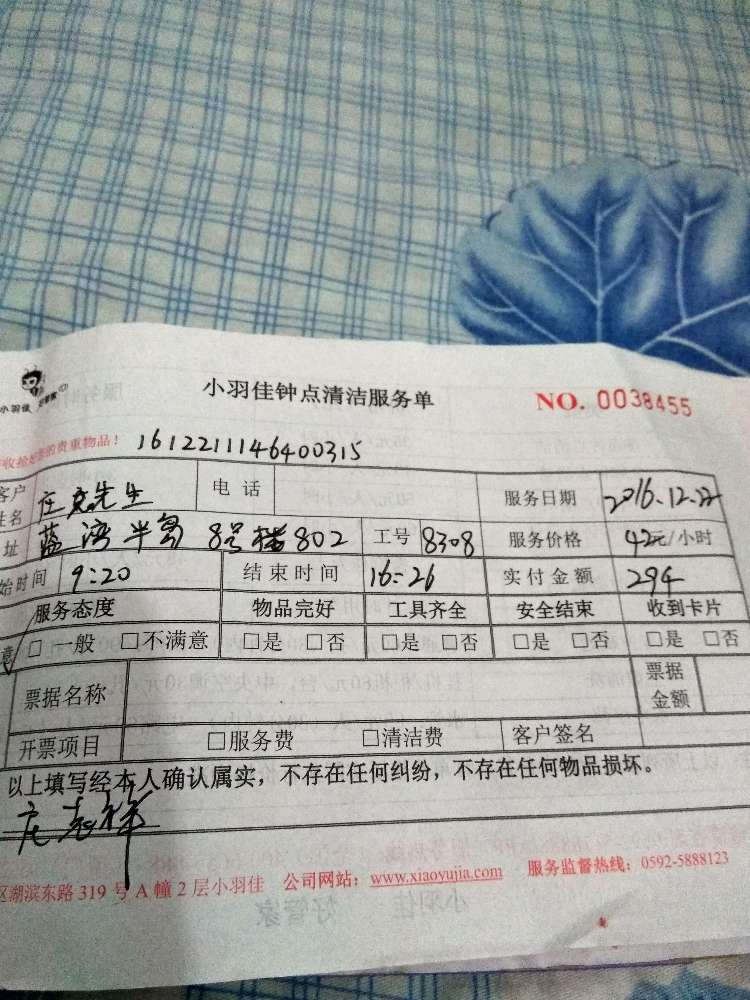 小羽佳钟点清洁服务单 NO. 0038455
小羽佳
收拾好您的贵重物品! 1612211146400315
客户姓名 庄先生 电话 服务日期 2016.12.22
址 蓝湾半岛 8号楼802 工号 8308 服务价格 42元/小时
始时间 9:20 结束时间 16:26 实付金额 294
服务态度 物品完好 工具齐全 安全结束 收到卡片
意 □一般 □不满意 □是 □否 □是 □否 □是 □否 □是 □否
票据名称 票据金额
开票项目 □服务费 □清洁费 客户签名
以上填写经本人确认属实,不存在任何纠纷,不存在任何物品损坏。
区湖滨东路 319 号 A 幢 2 层小羽佳 公司网站:www.xiaoyujia.com 服务监督热线:0592-5888123
小羽佳 好管家